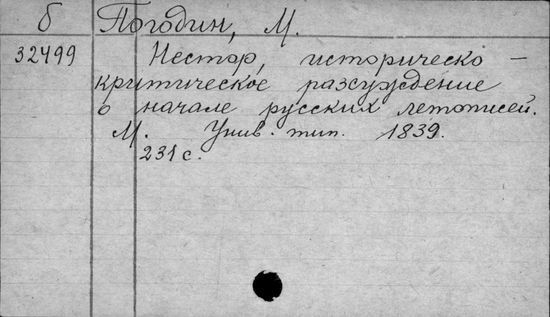 б Погодин, М.
32499 Нестор, историческо-
критическое рассуждение
о начале русских летописей.
М. Унив. тип. 1839.
231 с.